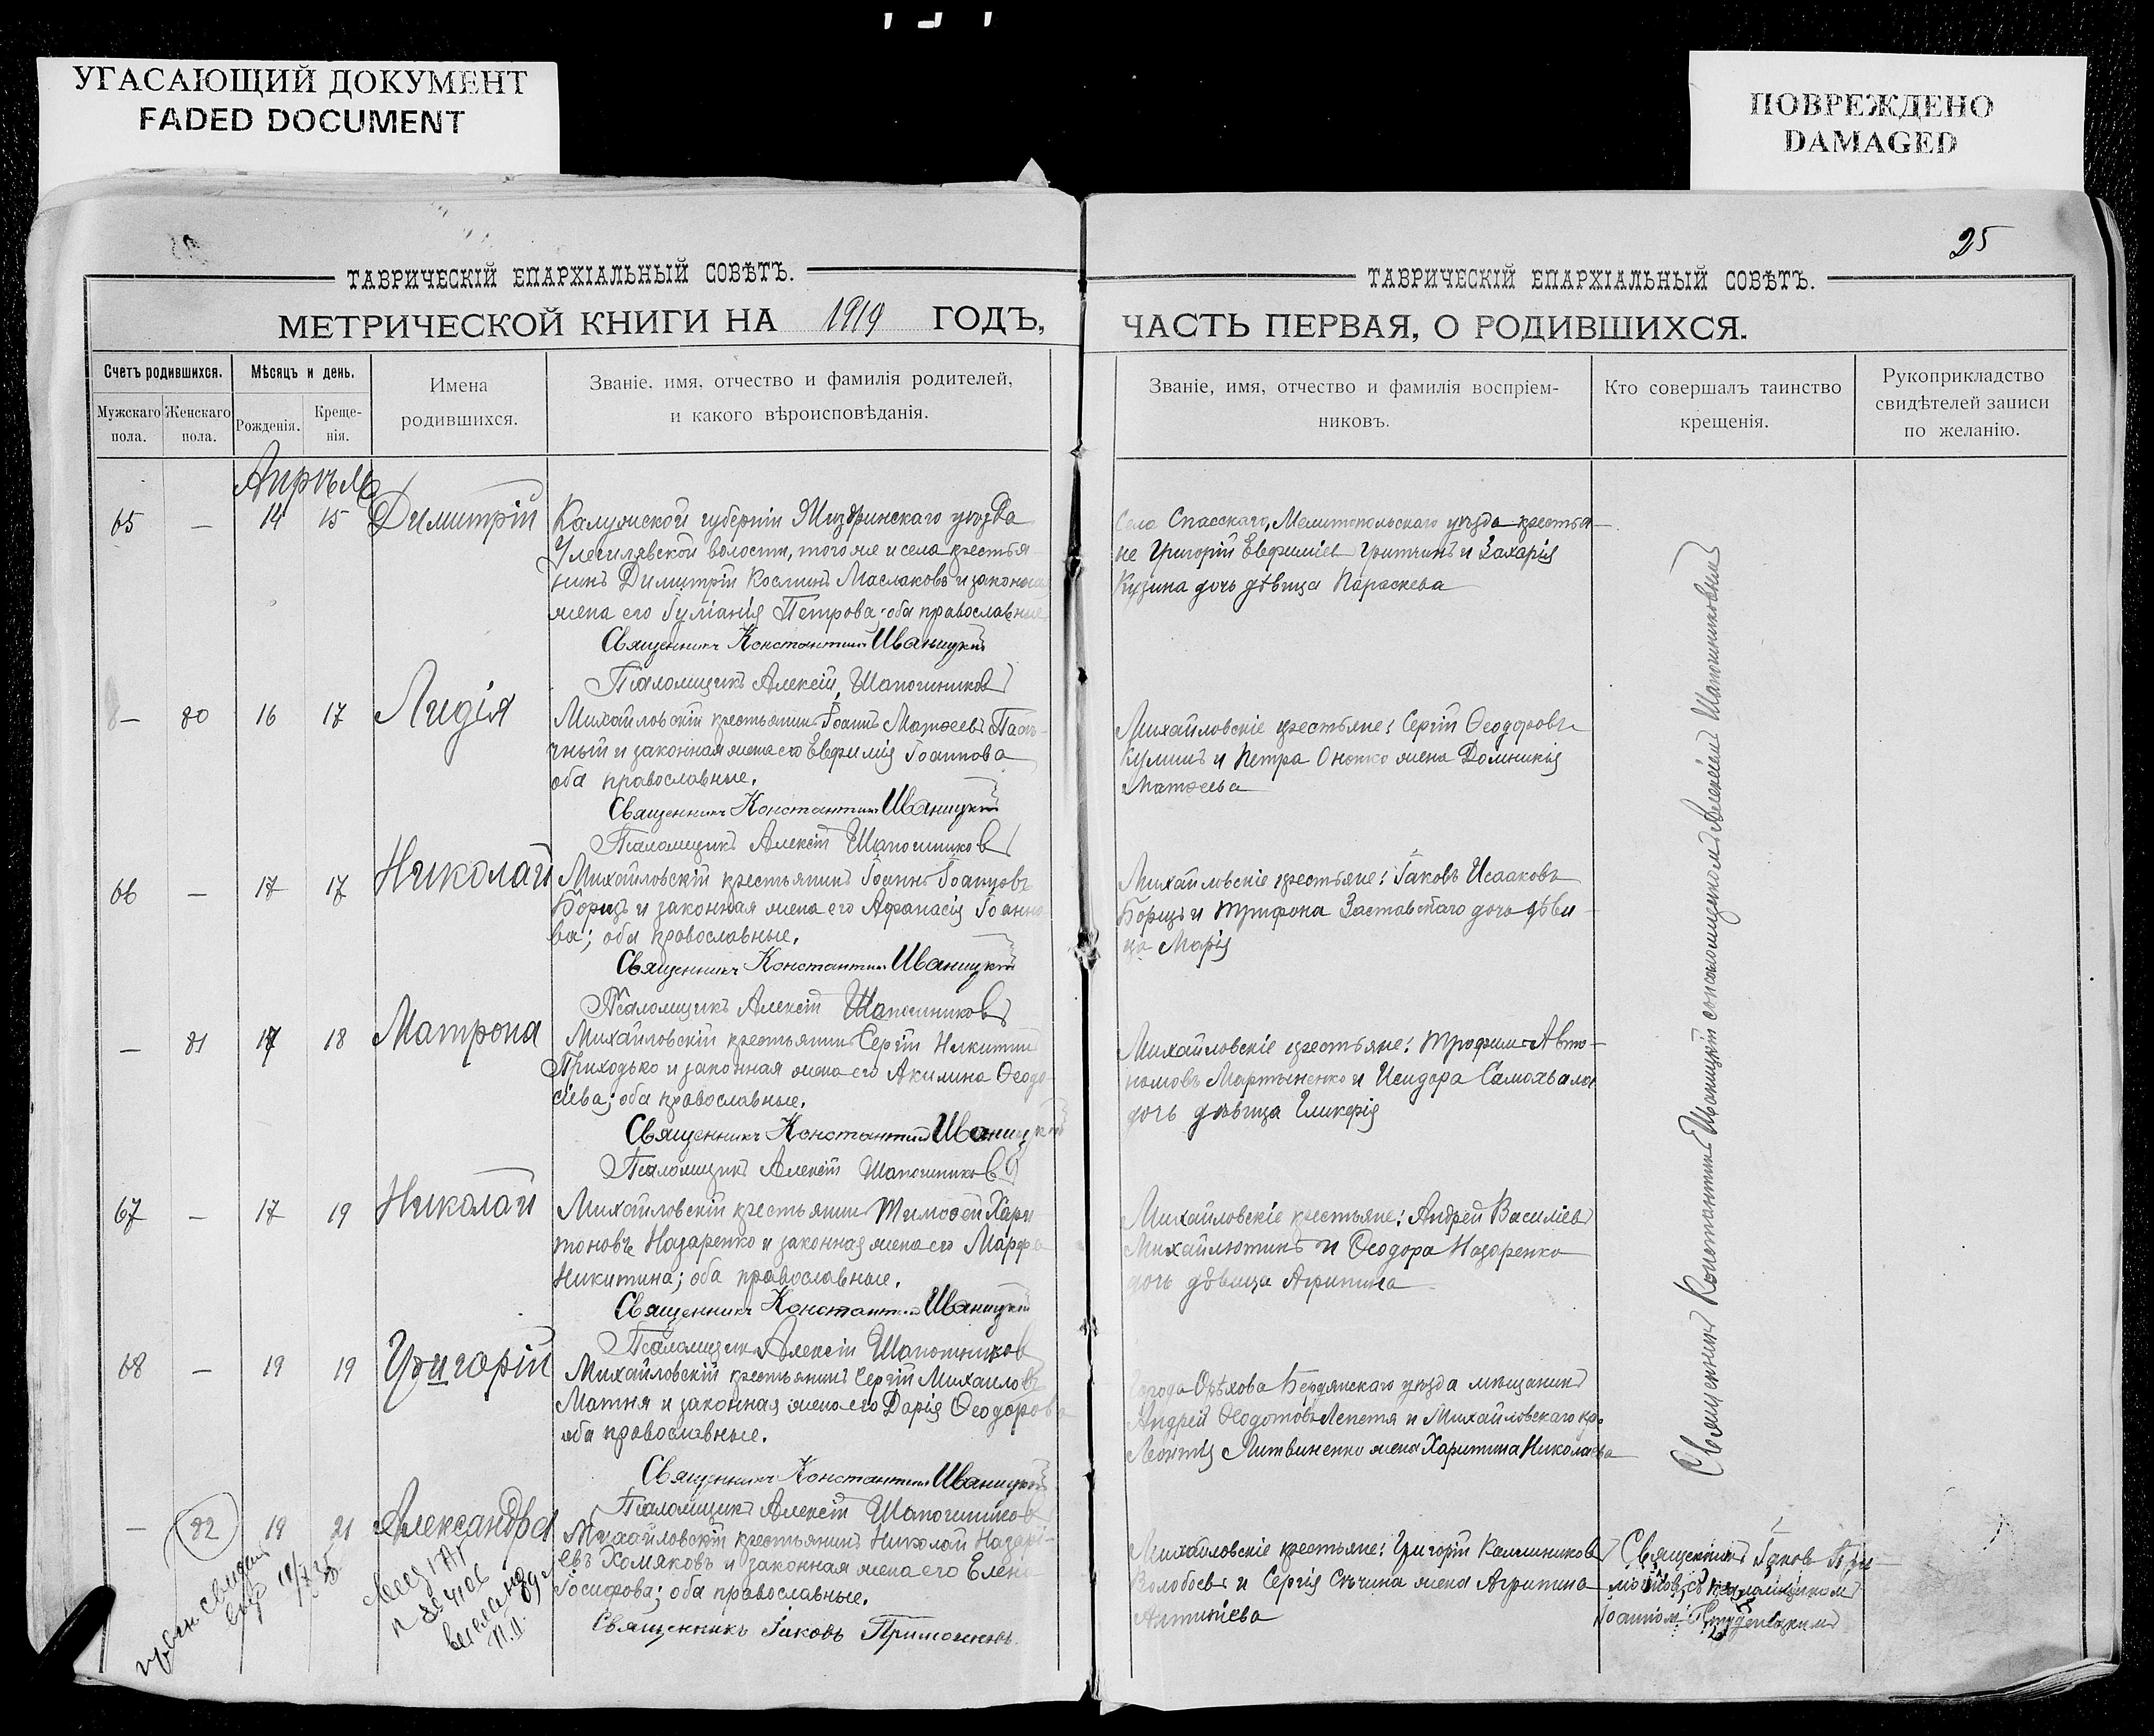 УГАСАЮЩИЙ ДОКУМЕНТ
FADED DOCUMENT
ПОВРЕЖДЕНО
DAMAGED
25
ТАВРИЧЕСКІЙ ЕПАРХІАЛЬНЫЙ СОВѢТЪ.
МЕТРИЧЕСКОЙ КНИГИ НА 1919 ГОДЪ,
Счетъ родившихся.
Мѣсяцъ и день.
Имена
родившихся.
Званіе, имя, отчество и фамилія родителей,
и какого вѣроисповѣданія.
Мужскаго
пола.
Женскаго
пола.
Рожденія.
Креще-
нія.
Апрѣль
65 — 14 15 Димитрій
Калужской губерніи Жиздринскаго уѣзда
волости, того же и села крестья-
нинъ Димитрій Косминъ Маслаковъ и законная
жена его Іуліанія Петрова; оба православные
Священникъ Константинъ Иваницкій
Псаломщикъ Алексій Шапошниковъ
— 80 16 17 Лидія
Михайловскій крестьянинъ Іоаннъ Матѳеевъ
и законная жена его Евфимія Іоаннова
оба православные.
Священникъ Константинъ Иваницкій
Псаломщикъ Алексій Шапошниковъ
66 — 17 17 Николай
Михайловскій крестьянинъ Іоаннъ Іоанновъ
Борщъ и законная жена его Афанасія Іоанно-
ва; оба православные.
Священникъ Константинъ Иваницкій
Псаломщикъ Алексій Шапошниковъ
— 81 17 18 Матрона
Михайловскій крестьянинъ Сергій Никитинъ
Приходько и законная жена его Акилина Ѳеодо-
сіева; оба православные.
Священникъ Константинъ Иваницкій
Псаломщикъ Алексій Шапошниковъ
67 — 17 19 Николай
Михайловскій крестьянинъ Тимоѳей Хари-
тоновъ Назаренко и законная жена его Марфа
Никитина; оба православные.
Священникъ Константинъ Иваницкій
Псаломщикъ Алексій Шапошниковъ
68 — 19 19 Григорій
Михайловскій крестьянинъ Сергій Михаиловъ
Матня и законная жена его Дарія Ѳеодорова
оба православные.
Священникъ Константинъ Иваницкій
Псаломщикъ Алексій Шапошниковъ
— 82 19 21 Александра
Михайловскій крестьянинъ Николай Назарі-
евъ Хомяковъ и законная жена его Елена
Іосифова; оба православные.
Священникъ Іаковъ
ТАВРИЧЕСКІЙ ЕПАРХІАЛЬНЫЙ СОВѢТЪ.
ЧАСТЬ ПЕРВАЯ, О РОДИВШИХСЯ.
Званіе, имя, отчество и фамилія воспріем-
никовъ.
Кто совершалъ таинство
крещенія.
Рукоприкладство
свидѣтелей записи
по желанію.
Села Спасскаго, Мелитопольскаго уѣзда крестья-
не Григорій Евфиміевъ и Захарія
Кузина дочь дѣвица Параскева
Михайловскіе крестьяне: Сергій Ѳеодоровъ
и Петра Онопко жена Домникія
Матѳеева
Михайловскіе крестьяне: Іаковъ Исааковъ
Борщъ и Трифона Заставскаго дочь дѣви-
ца Марія
Михайловскіе крестьяне: Трофимъ Авто-
номовъ Мартыненко и Исидора Самохвала
дочь дѣвица Гликерія
Михайловскіе крестьяне: Андрей Василіевъ
Михайлютинъ и Ѳеодора Назаренко
дочь дѣвица Агрипина
города Орѣхова Бердянскаго уѣзда мѣщанинъ
Андрей Ѳеодотовъ Лепетя и Михайловскаго кр.
Леонтія Литвиненко жена Харитина Николаева
Михайловскіе крестьяне: Григорій Калинниковъ
Колобовъ и Сергія жена Агрипина
Антипіева
Священникъ Константинъ Иваницкій съ псаломщикомъ Алексіемъ Шапошниковымъ
Священникъ Іаковъ
съ псаломщикомъ
Іоанномъ